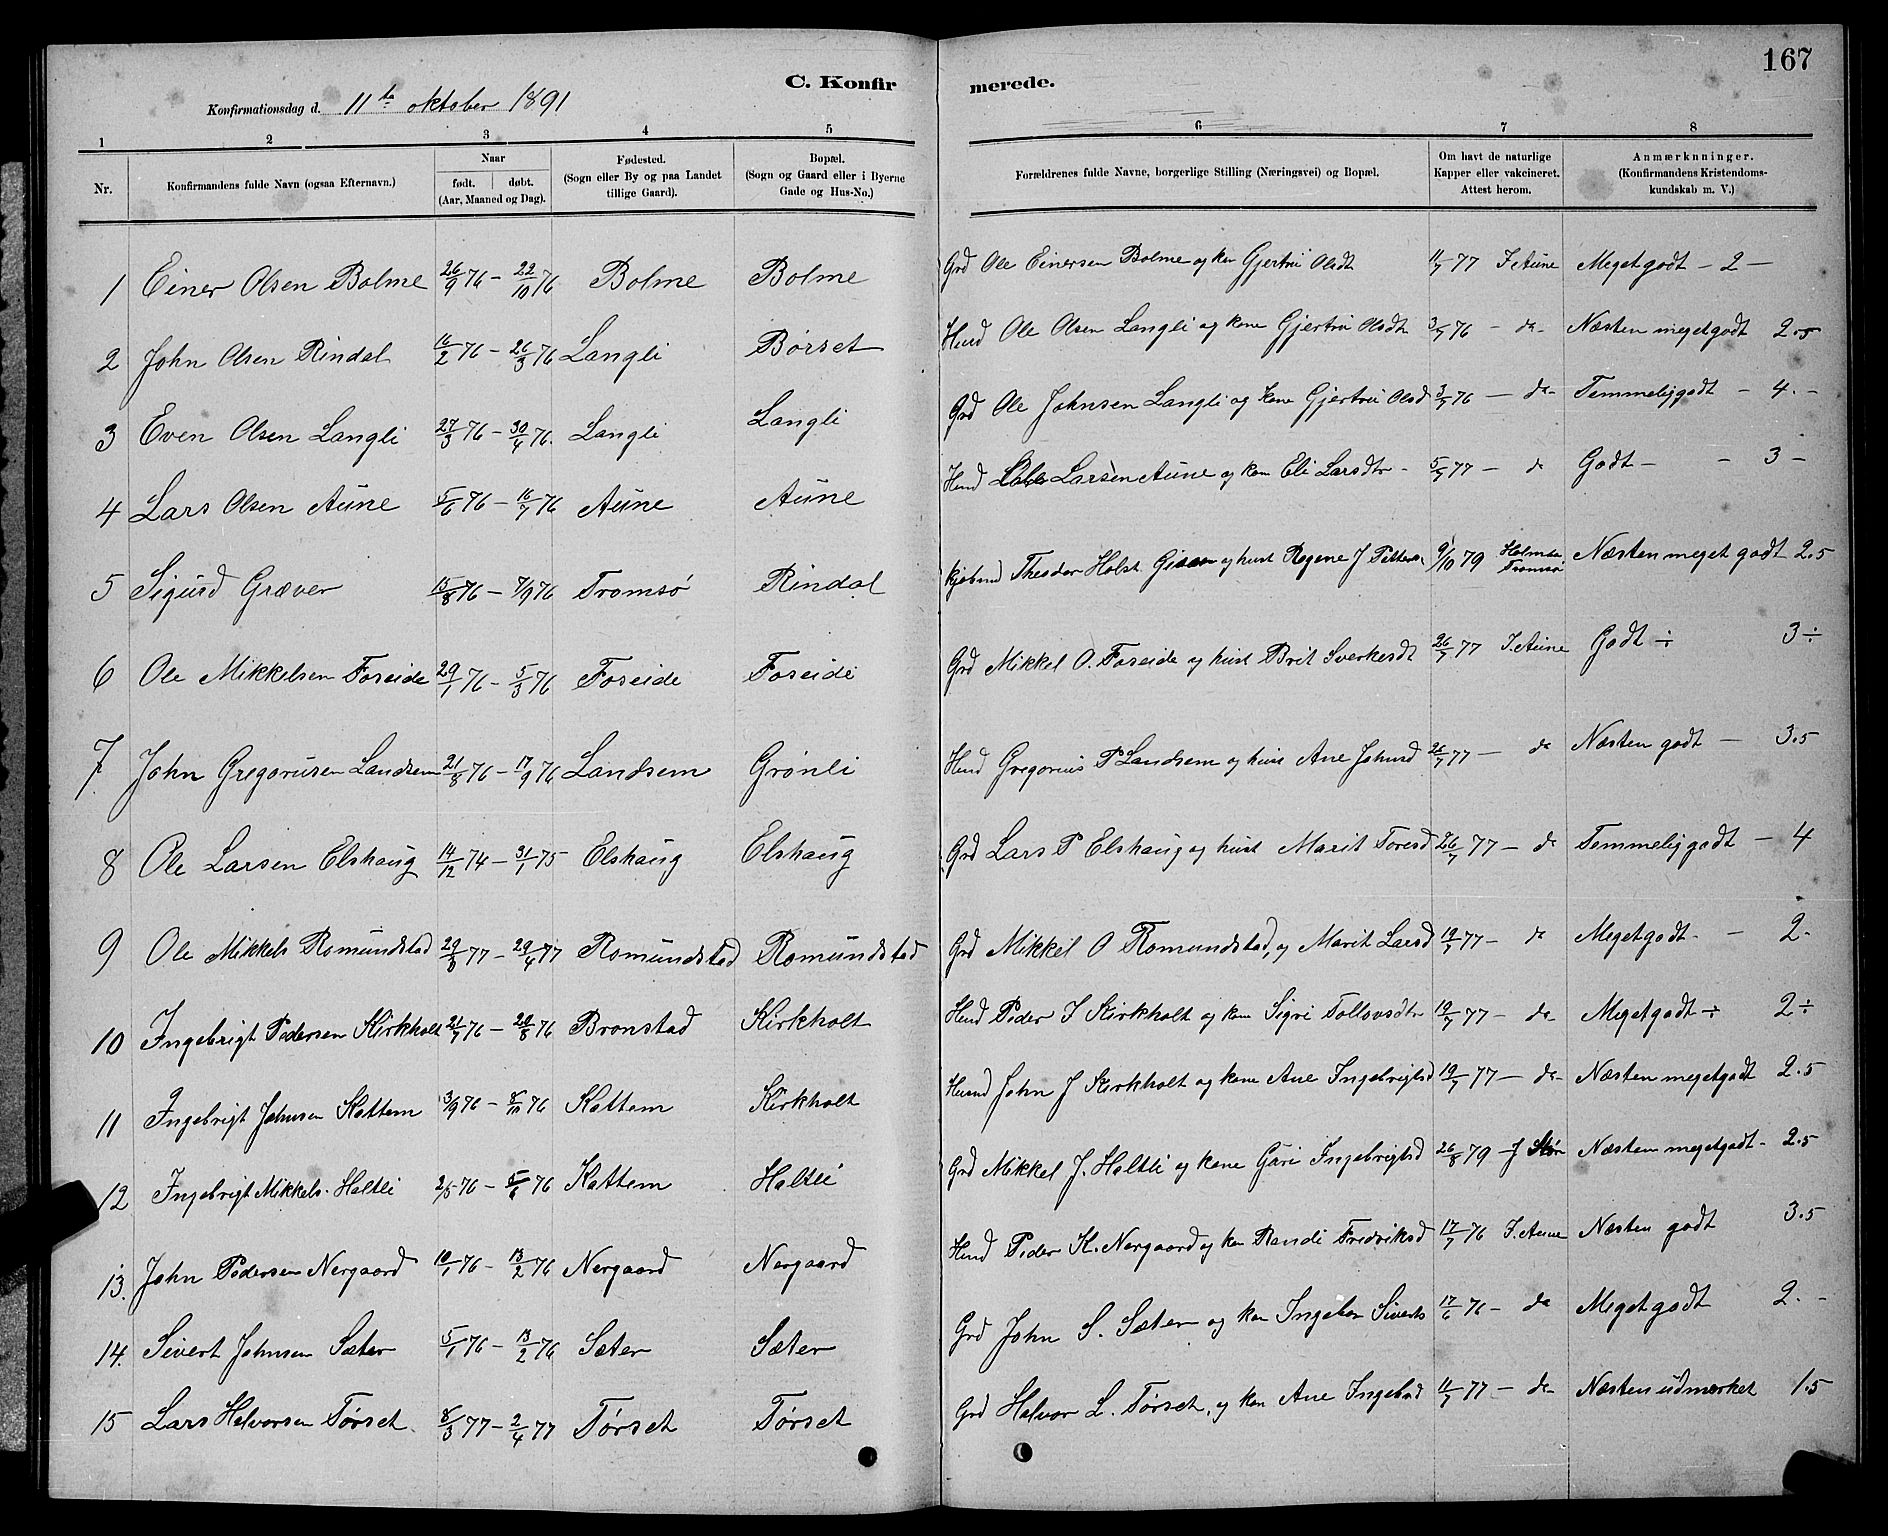 167
C. Konfirmerede.
Konfirmationsdag d. 11te oktober 1891
1 2 3 4 5 6 7 8
Nr. Konfirmandens fulde Navn (ogsaa Efternavn.) Naar født. døbt. (Aar, Maaned og Dag). Fødested. (Sogn eller By og paa Landet tillige Gaard). Bopæl. (Sogn og Gaard eller i Byerne Gade og Hus-No.) Forældrenes fulde Navne, borgerlige Stilling (Næringsvei) og Bopæl. Om havt de naturlige Kapper eller vakcineret. Attest herom. Anmærknninger. (Konfirmandens Kristendoms-kundskab m. V.)
1 Einer Olsen Bolme 26/9 76 – 22/10 76 Bolme Bolme Grd Ole Einersen Bolme og kon Gjertrü Olsdt 11/7 77 I. Aune Megetgodt – 2 –
2 John Olsen Rindal 16/2 76 – 26/3 76 Langli Børset Husd Ole Olsen Langli og kone Gjertrü Olsdt 3/7 76 – do – Næsten megetgodt 2.5
3 Even Olsen Langli 27/3 76 – 30/4 76. Langli Langli Grd Ole Johnsen Langli og kone Gjertrü Olsd 3/7 76 – do – Temmeliggodt – 4. –
4 Lars Olsen Aüne 5/6 76 – 16/7 76 Aüne Aüne Husd Larsen Aüne og kon Eli Larsdtr – 5/7 77 – do Godt – – 3 –
5 Sigurd Græver 15/8 76 – 7/9 76 Tromsø Rindal kjøbmd Theodor Holst og hust Regine J 9/10 79 Tromsø Næsten meget godt 2.5
6 Ole Mikkelsen Foseide 29/1 76 – 5/3 76 Foseide Foseide Grd Mikkel O. Foseide og hust Brit Sverkesdt 26/7 77 I. Aune Godt ÷ 3 ÷
7 John Gregoriusen Landsem 21/8 76 – 17/9 76 Landsem Grønli Husd Gregorius P Landsem og hust Ane Johnsd 26/7 77 – do Næsten godt – 3.5
8 Ole Larsen Elshaug 14/12 74 – 31/1 75 Elshaug Elshaug Grd Lars P Elshaug og hust Marit Toresd 26/7 77 – do Temmeliggodt – 4
9 Ole Mikkels Romündstad 29/3 77 – 29/4 77 Romündstad Romündstad Grd Mikkel O Romundstad, og Marit Larsd 19/7 77 – do Megetgodt – – 2 –
10 Ingebrigt Pedersen Kirkholt 21/7 76 – 20/8 76 Bronstad Kirkholt Husd Peder I Kirkholt og kon Sigri Tollovsdtr 19/7 77 – do – Megetgodt ÷ 2 ÷
11 Ingebrigt Johnsen Kattem 3/9 76 – 8/10 76 Kattem Kirkholt Husmd John J Kirkholt og kone Ane Ingebrigtsd 19/7 77 – do – Næsten megetgodt 2.5
12 Ingebrigt Mikkels. Haltli 2/5 76 – 5/6 76 Kattem Haltli Grd Mikkel J. Haltli og kone Güri Ingebrigtsd 26/8 79 – J Næsten megetgodt – 2.5
13. John Pedersen Nergaard 10/1 76 – 13/2 76 Nergaard Nergaard Husd Peder K. Nergaard og kon Randi Fredriksd 17/7 76 I. Aune Næsten godt 3.5
14. Sivert Johnsen Sæter 5/1 76 – 13/2 76 Sæter Sæter Grd John S. Sæter og kon Ingebor Siverts 17/6 76 – do Megetgodt 2. –
15 Lars Halvorsen Tørset 8/3 77 – 2/4 77 Tørset Tørset Grd Halvor L. Tørset, og kon Ane Ingebrd 11/7 77 – do – Næsten udmerket 1.5